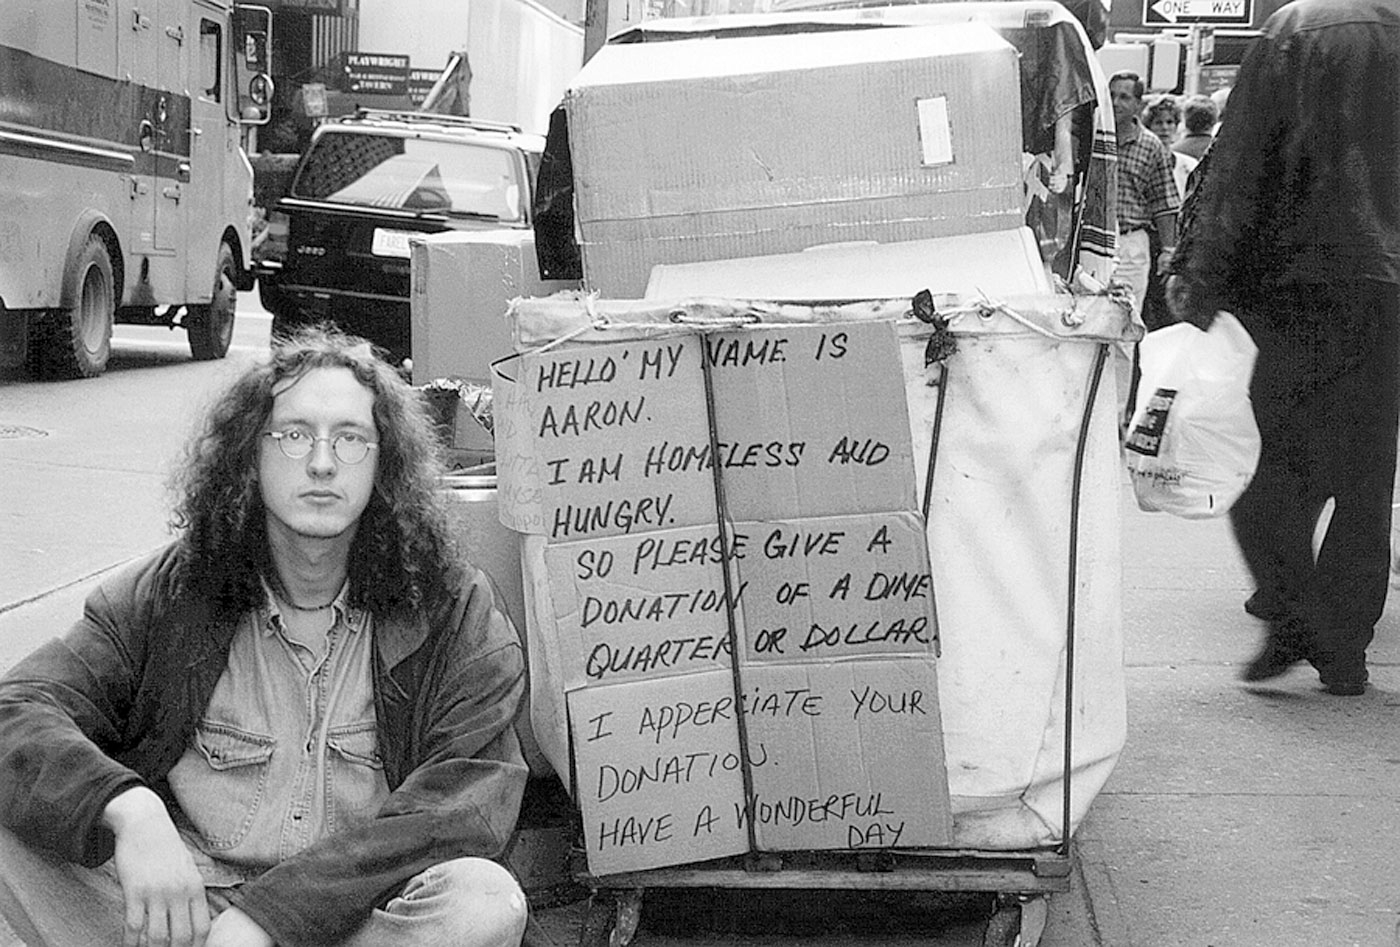 ONE WAY
PLAYWRIGHT
TAVERN
Jeep
HELLO' MY NAME IS
AARON.
I AM HOMELESS AND
HUNGRY.
SO PLEASE GIVE A
DONATION OF A DIME
QUARTER OR DOLLAR.
I APPERCIATE YOUR
DONATION.
HAVE A WONDERFUL
DAY